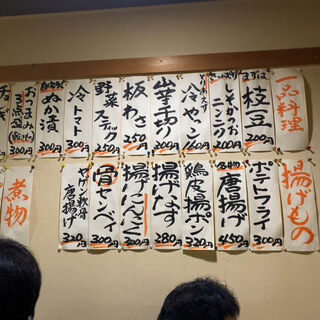 一品料理
まずは
枝豆
200円
しそかつお
ニンニク
200円
冷やっこ
160円
300円
板わさ
250円
野菜
スティック
250円
冷トマト
300円
ぬか漬
300円
おつまみ
3点盛
300円
揚げもの
ポテトフライ
300円
名物
唐揚げ
450円
鶏皮揚ポン
320円
揚げなす
280円
揚げにんにく
300円
骨センベイ
300円
ヤゲン軟骨
唐揚げ
320円
煮物